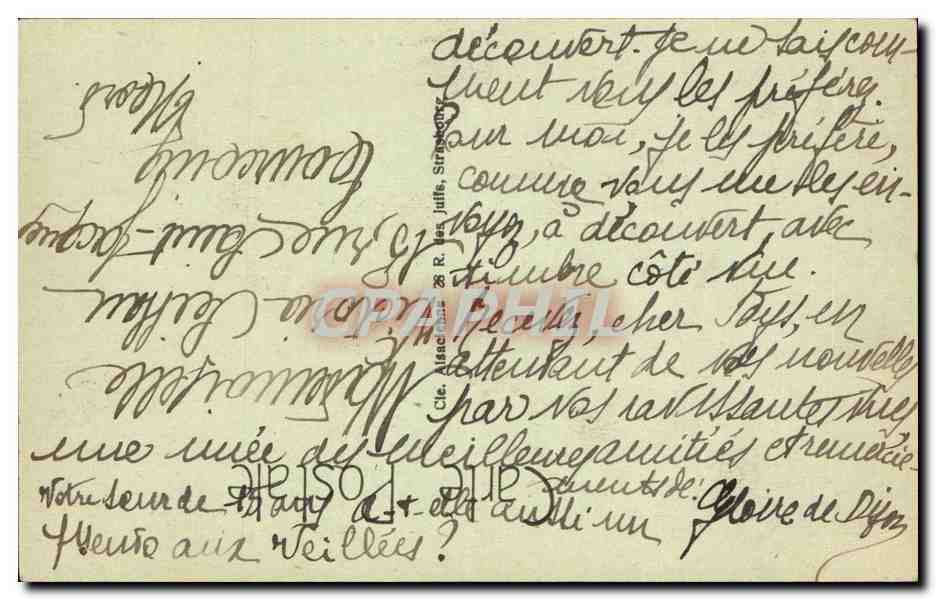 découvert. Je ne sais com-
ment vous les préférez.
Pour moi, je les préfère,
comme vous me les en-
voyez, à découvert, avec
timbre côté vue.
Je suis, cher Pays, en
attendant de vos nouvelles
par vos ravissantes vues
une nuée des meilleures amitiés et remercie-
ments de:
Gloire de Dijon
Votre soeur de 15 ans a-t-elle aussi un
pseudo aux Veillées?
Carte Postale
Mademoiselle
rue Saint-Jacques
Tourcoing
Nord
Cie. Alsacienne 28 R. des Juifs, Strasbourg
CPAPHIL